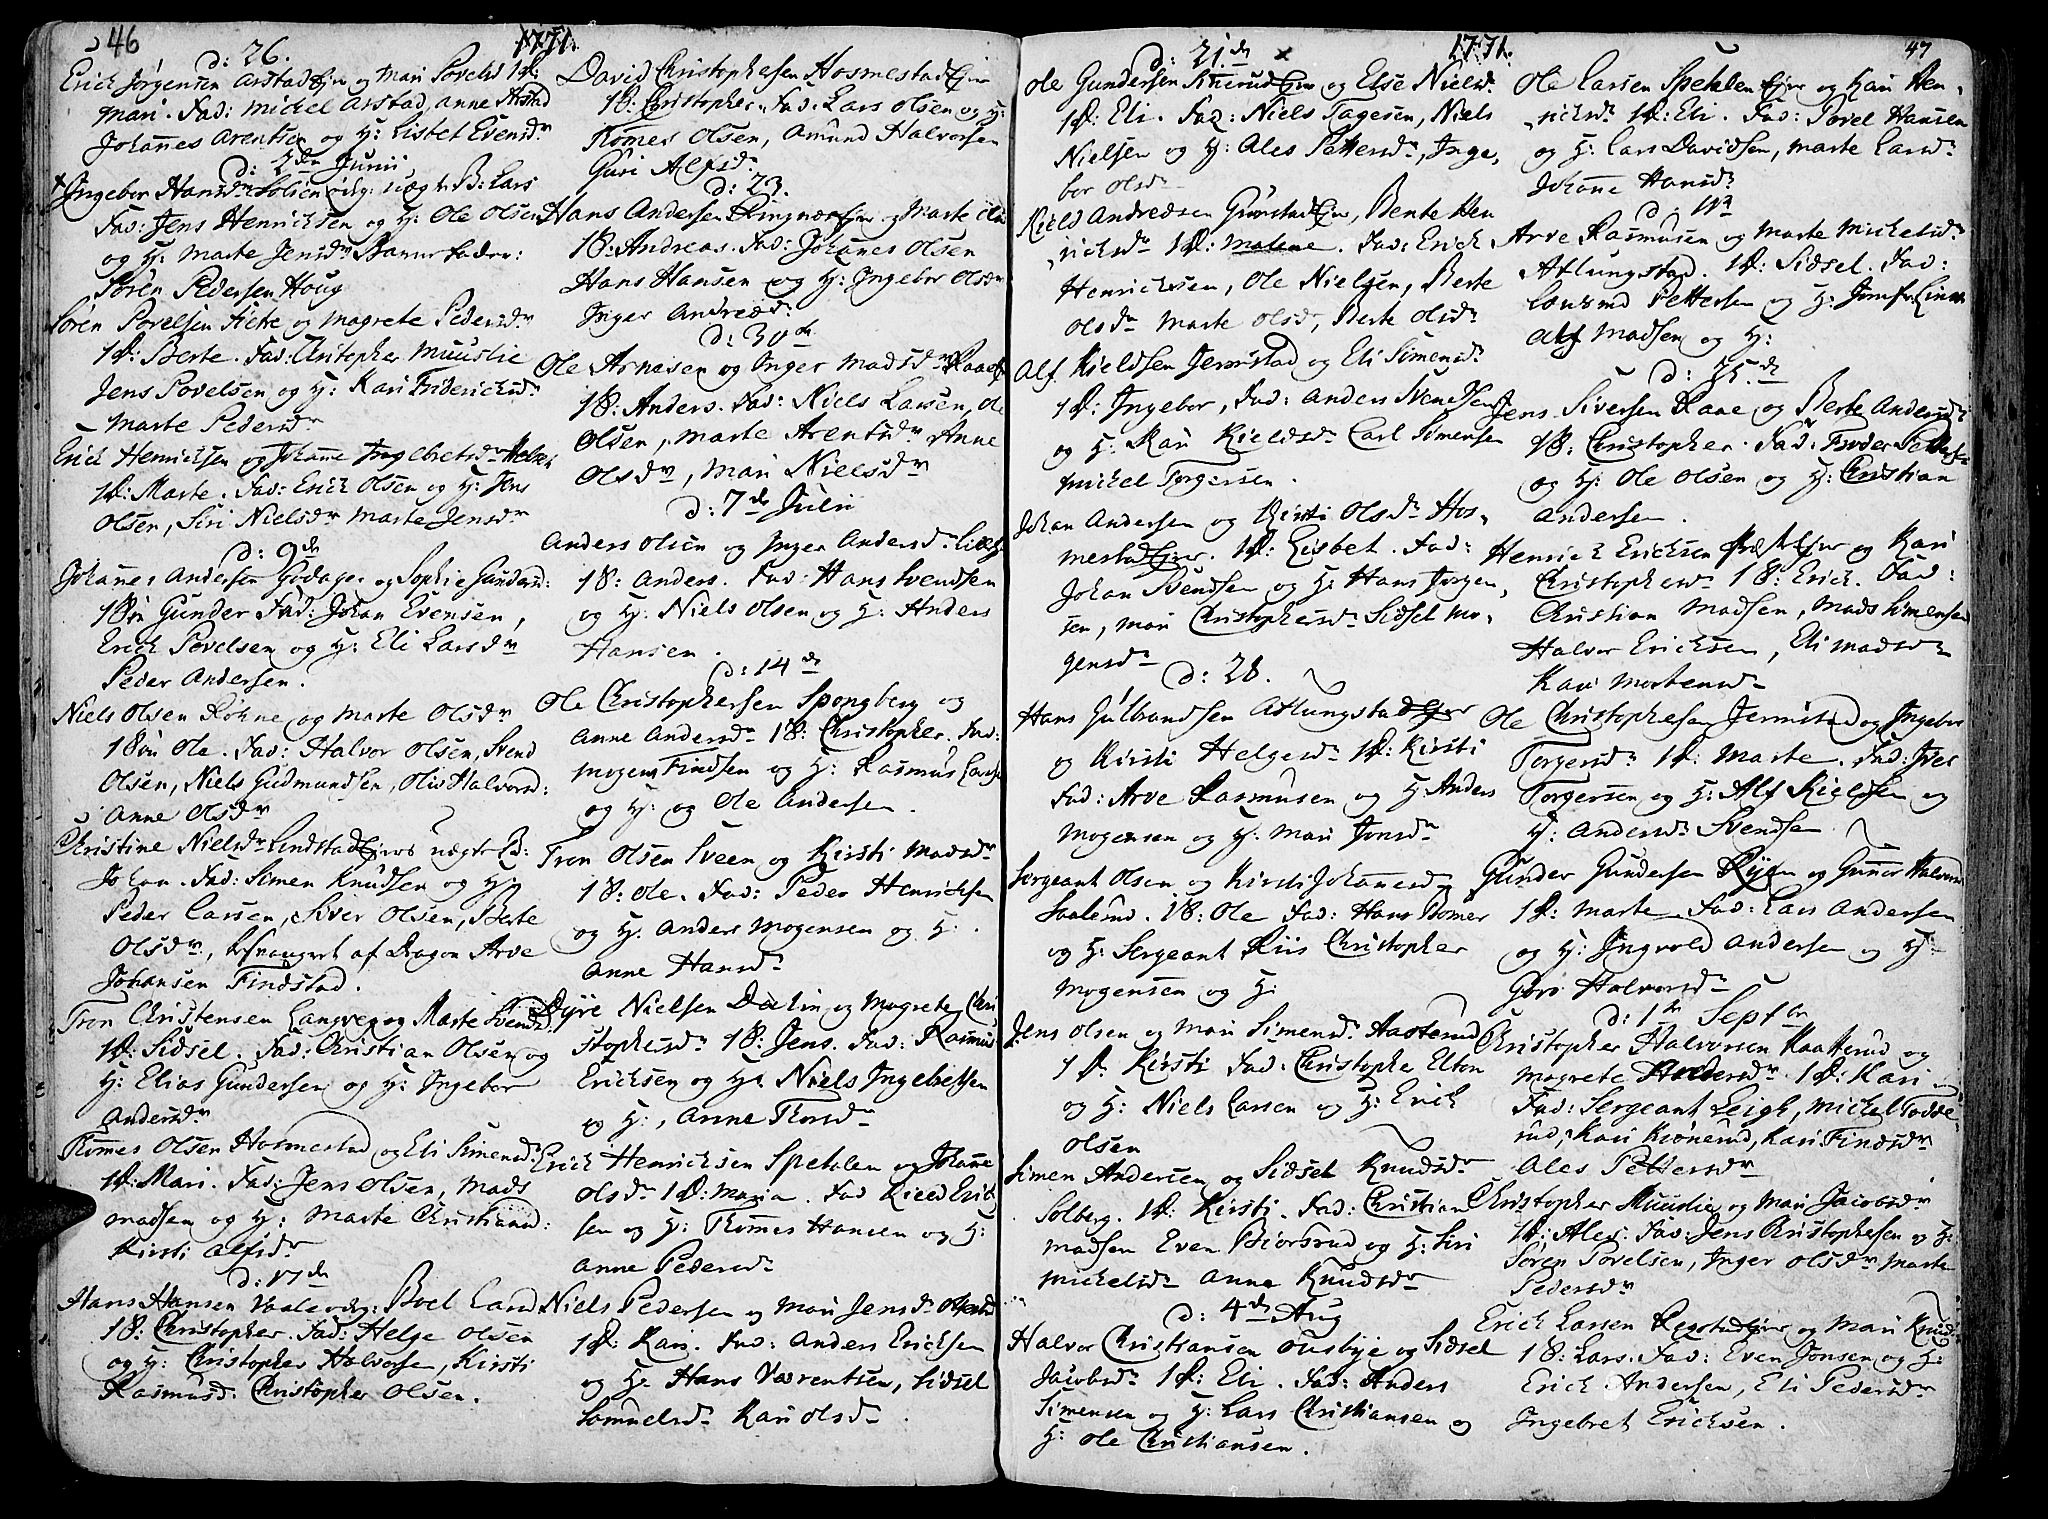 46
1771.
d: 26.
Erich Jørgensen Arstad Ejer og Mari Povelsd 1 P:
Mari. Fad: Michel Arstad, Anne Arstad
Johannes Arentsen og H: Lisbet Evensdr
d: 2den Junii
Ingebor Hansdr Solsen B: Lars
Fad: Jens Henrichsen og H: Ole Olsen
og H: Marte Jensdr Barnefader:
Søren Pedersen Houg
Søren Povelsen og Magrete Pedersdr
1 P: Berte. Fad: Christopher Muuslie
Jens Povelsen og H: Kari Friderichsdr
Marte Pedersdr
Erich Henrichsen og Johanne Ingebretsdr
1 P: Marte. Fad: Erich Olsen og H: Jens
Olsen, Siri Nielsdr Marte Jensdr
d: 9de
Johannes Andersen Godager og Sophie Gundersd:
1 Søn Gunder Fad: Johan Evensen,
Erich Povelsen og H: Eli Larsdr
Peder Andersen.
Niels Olsen Røhne og Marte Olsdr
1 Søn Ole. Fad: Halvor Olsen, Svend
Olsen, Niels Gudmundsen, Olis Halvorsd:
Anne Olsdr
Christine Nielsdr Lindstad Ejer B:
Johan. Fad: Simen Knudsen og H:
Peder Larsen, Siver Olsen, Berte
Olsdr, besvangret af Dragon Arve
Johansen Findstad.
Tron Christensen Langveg og Marte Svendsd:
1 P: Sidsel. Fad: Christian Olsen og
H: Elias Gundersen og H: Ingebor
Andersdr
Thomes Olsen Hosmestad og Eli Simensd:
1 P: Mari. Fad: Jens Olsen, Mads
Madsen og H: Marte Christiansd:
Kirsti Alfsdr
d: 17de
Hans Hansen Boel Larsd
1 B: Christopher. Fad: Helge Olsen
og H: Christopher Halvorsen, Kirsti
Rasmusd: Christopher Olsen.
David Christophersen Hosmestad Ejer
1 B: Christopher. Fad: Lars Olsen og H:
Thomes Olsen, Amund Halvorsen
Guri Alfsdr
d: 23.
Hans Andersen Ringnæs Ejer og Marte
1 B: Andreas. Fad: Johannes Olsen
Hans Hansen og H: Ingebor Olsdr
Inger Andreæd:
d: 30de
Ole Arnesen og Inger Madsdr
1 B: Anders. Fad: Niels Larsen, Ole
Olsen, Marte Arentsdr Anne
Olsdr, Mari Nielsdr
d: 7de Julii
Anders Olsen og Inger Andersdr
1 B: Anders. Fad: Hans Svendsen
og H: Niels Olsen og H: Anders
Hansen.
d: 14de
Ole Christophersen Spongberg og
Anne Andersdr 1 B: Christopher. Fad:
Mogens Findsen og H: Rasmus Larse
og H: og Ole Andersen.
Tron Olsen Sveen og Kirsti Madsdr
1 B: Ole. Fad: Peder Henrichsen
og H: Anders Mogensen og H:
Anne Hansdr
Dyre Nielsen Dælin og Magrete Chri
stophersdr 1 B: Jens. Fad: Rasmus
Ericksen og H: Niels Ingebretsen
og H:, Anne Thorsdr
Erich Henrichsen Spetalen og Johanne
Olsdr 1 P: Maria. Fad Kield Erich
sen og H: Thomes Hansen og H:
Anne Pedersdr
Niels Pedersen og Mari Jensdr
1 P: Kari. Fad: Anders Ericksen
og H: Hans Værentsen, Sidsel
Samuelsdr Kari Olsdr
1771.
47
d: 21de
Ole Gundersen Knerud Ejer og Else Nielsd.
1 P: Eli. Fad: Niels Tagesen, Niels
Nielsen og H: Ales Pettersdr, Inge,
bor Olsdr
Kield Andresen Grønstad Ejer, Bente Hen
richsdr 1 P: Malene. Fad: Erich
Henrichsen, Ole Nielsen, Berte
Olsdr Marte Olsdr, Berte Olsdr
Alf Kieldsen Jermstad og Eli Simensdr
1 P: Ingebor, Fad: Anders Svendsen
og H: Kari Kieldsdr Carl Simensen
Michel Torgersen.
Johan Andersen og Kirsti Olsdr Hos,
mestad Ejer. 1 P: Lisbet. Fad:
Johan Svendsen og H: Hans Jørgen,
sen, Mari Christophersdr Sidsel Mo,
gensdr
d: 28.
Hans Gulbrandsen Atlungstad Ejer
og Kirsti Helgesdr 1 P: Kirsti
Fad: Arve Rasmusen og H: Anders
Mogensen og H: Mari Jonsdr
Sergeant Olsen og Kirsti Johannesd
Saalerud. 1 B: Ole Fad: Hans Bomer
og H: Sergeant Riis Christopher
Mogensen og H:
Jens Olsen og Mari Simensdr Haaterud
1 P: Kirsti Fad: Christopher Elton
og H: Niels Larsen og H: Erich
Olsen
Simen Andersen og Sidsel Knudsdr
Solberg. 1 P: Kirsti. Fad: Christian
Madsen Even Biørsrud og H: Siri
Mickelsdr Anne Knudsdr
d: 4de Aug
Halvor Christiansen Ousbye og Sidsel
Jacobsdr 1 P: Eli. Fad: Anders
Simensen og H: Lars Christiansen og
H: Ole Christiansen.
Ole Larsen Spetalen Ejer og Kari Hen,
richsdr 1 P: Eli. Fad: Povel Hansen
og H: Lars Davidsen, Marte Larsdr
Johanne Hansdr
d: 11te
Arve Rasmusen og Marte Mickelsdr
Atlungstad. 1 P: Sidsel. Fad:
Pettersen og H: Jomfr
Alf Madsen og H:
d: 25.de
Jens Siversen Raae og Berte Andersd:
1 B: Christopher. Fad: Peder Pettersen
og H: Ole Olsen og H: Christian
Andersen.
Henrich Ericksen Ejer og Kari
Christophersdr 1 B: Erich. Fad:
Christian Madsen, Mads Simensen
Halvor Ericksen, Eli Madsdr
Kari Mortensdr
Ole Christophersen Jermstad og Ingebor
Torgersdr 1 P: Marte. Fad: Iver
Torgersen og H: Alf Kieldsen og
H: Andersdr Svendsen
Gunder Gundersen Ryen og Gunor Halvorsd
1 P: Marte. Fad: Lars Andersen
og H: Ingvold Andersen og H:
Goro Halvorsdr
d: 1te Septbr
Christopher Halvorsen Kaatterud og
Magrete Andersdr 1 P: Kari
Fad: Sergeant Leigh, Michel Todde,
rud, Kari Kiønerud, Kari Findsdr
Ales Pettersdr
Christopher Muuslie og Mari Jacobsdr
1 P: Ales. Fad: Jens Christophersen og H:
Søren Povelsen, Inger Olsdr Marte
Pedersdr
Erich Larsen Ejer og Mari Knudsd
1 B: Lars. Fad: Even Jonsen og H:
Erich Andersen, Eli Pedersdr
Ingebret Ericksen.